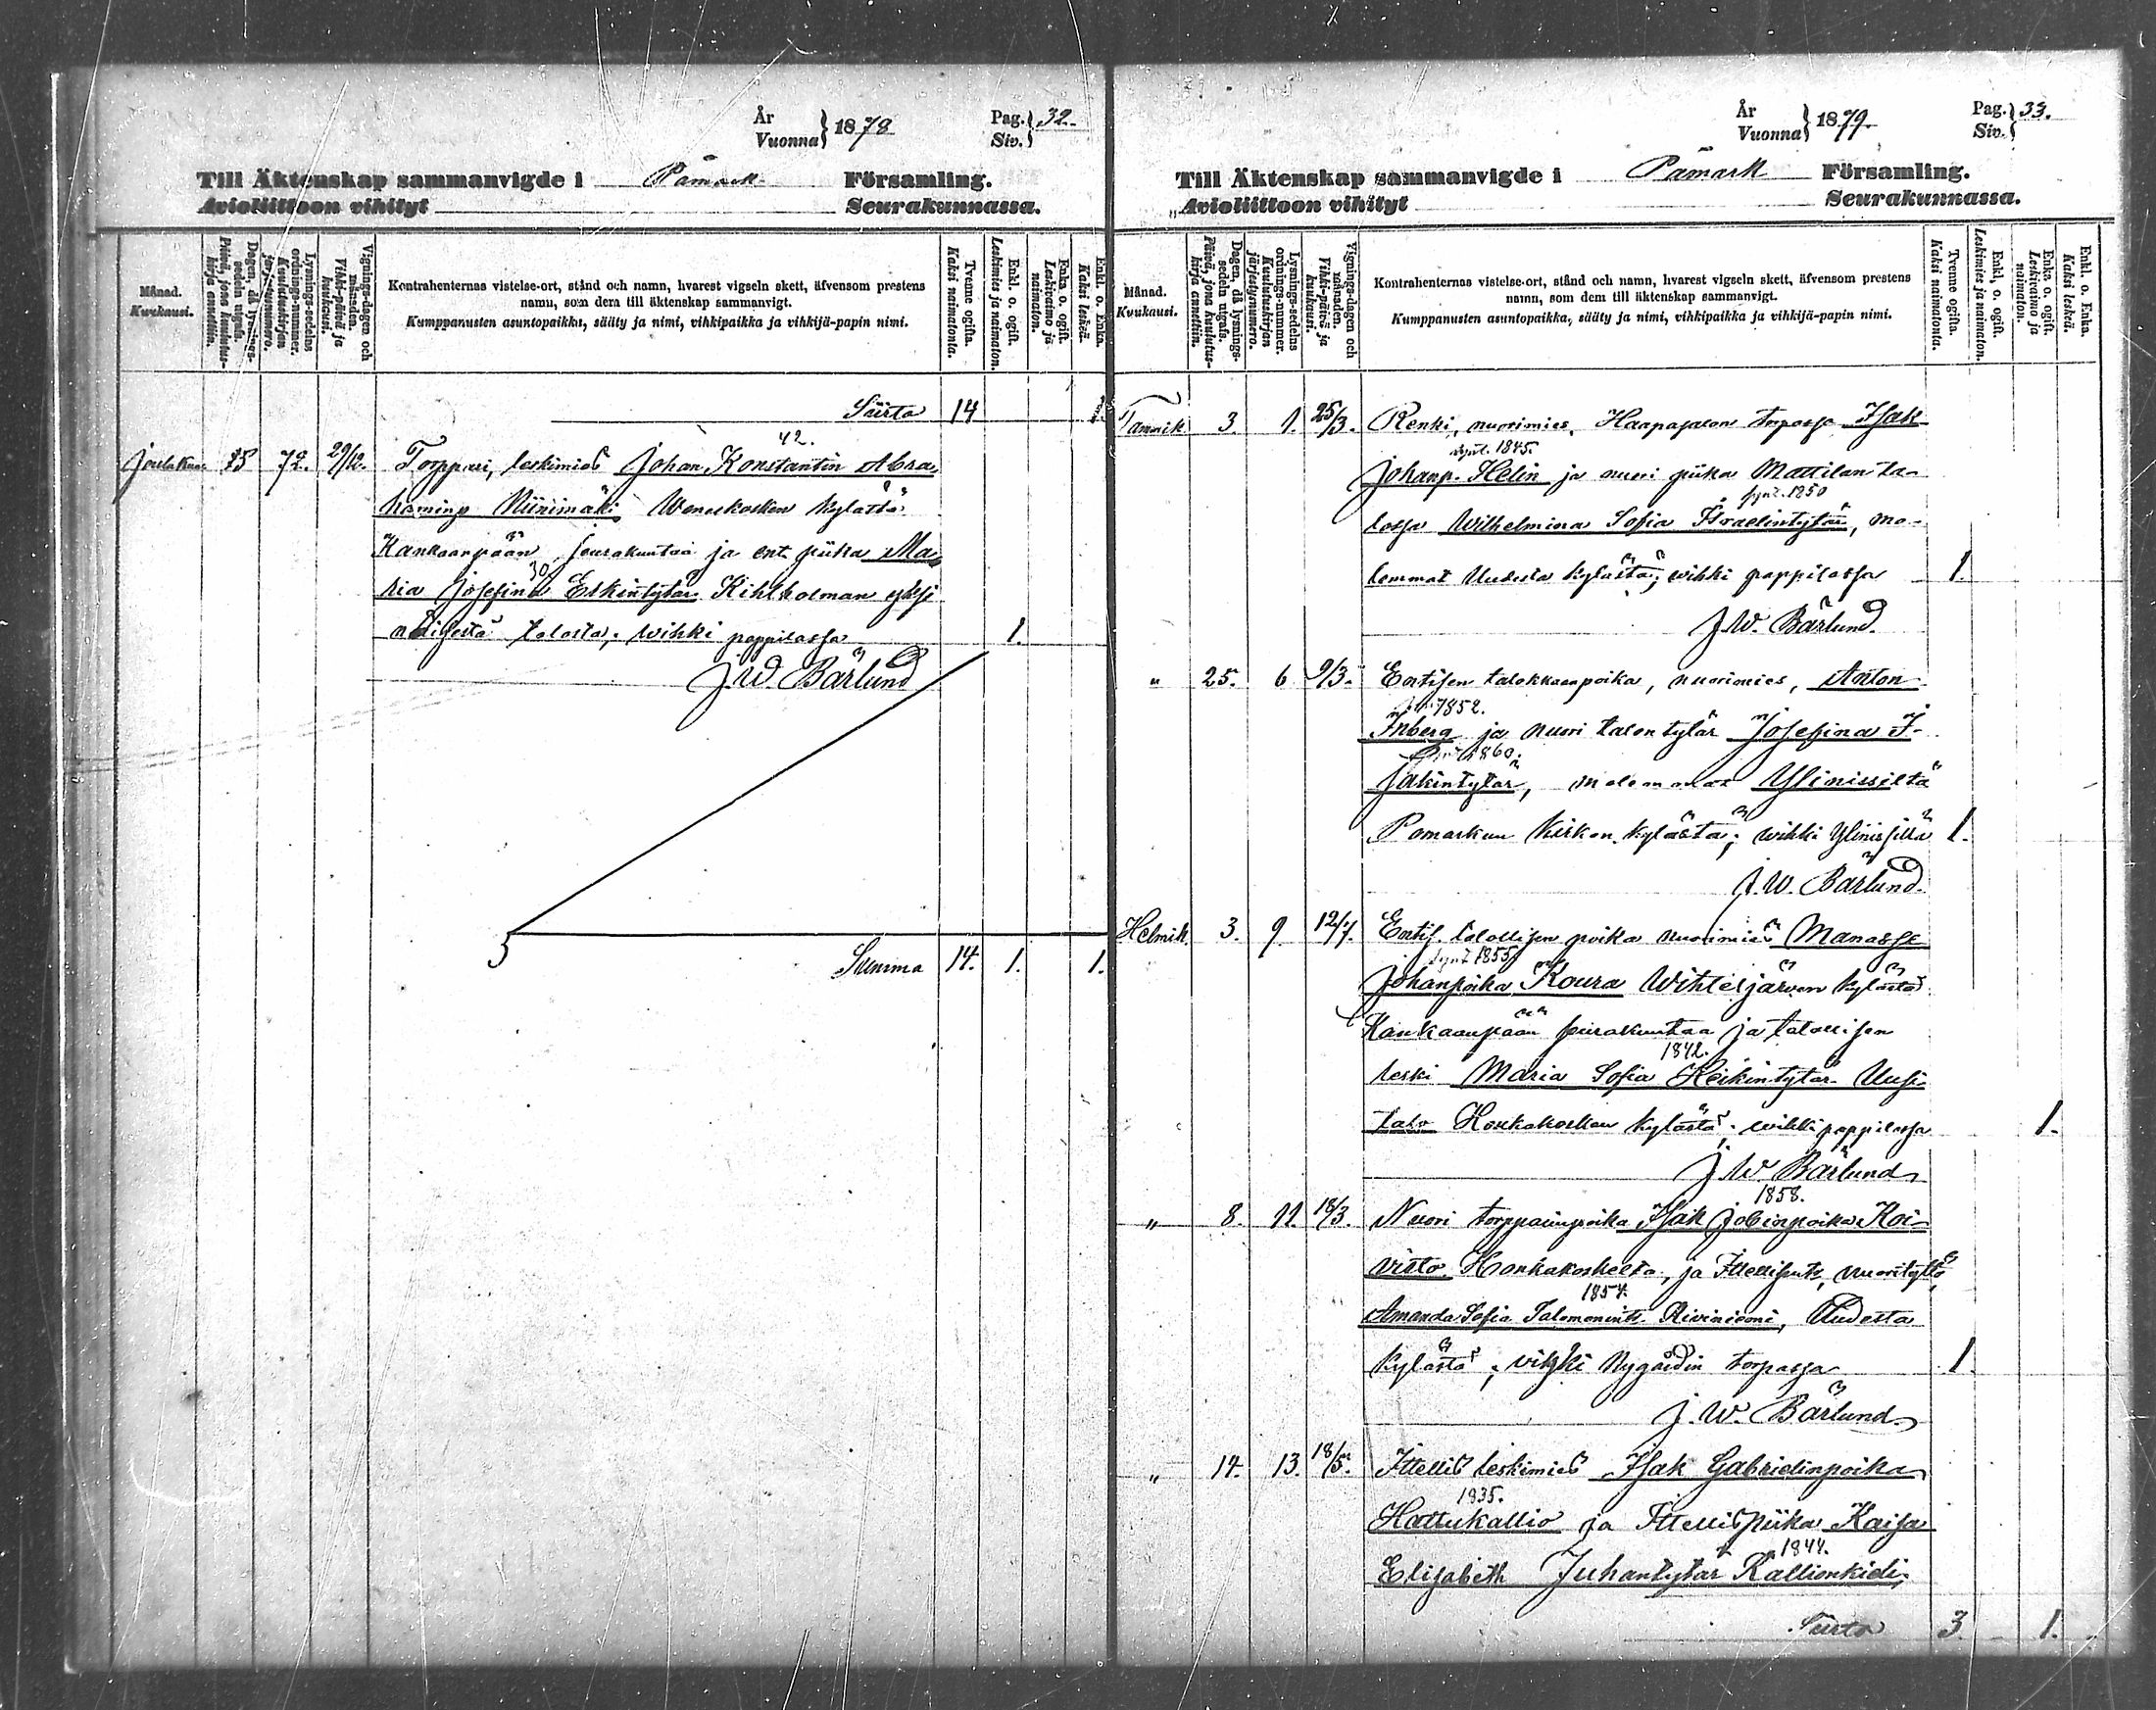 År
Vuonna } 1878
Pag.
Siv. } 32.
Till Äktenskap sammanvigde i Påmark Församling.
Avioliittoon vihityt Seurakunnassa.
Månad.
Kuukausi.
Dagen, då lysnings-sedeln utgafs.
Päivä, jona kuulutus-kirja annettiin.
Lysnings-sedelns ordnings-nummer.
Kuulutuskirjan järjestysnumero.
Vignings-dagen och månaden.
Vihki-päivä ja kuukausi.
Kontrahenternas vistelse-ort, stånd och namn, hvarest vigseln skett, äfvensom prestens
namn, som dem till äktenskap sammanvigt.
Kumppanusten asuntopaikka, sääty ja nimi, vihkipaikka ja vihkijä-papin nimi.
Tvenne ogifta.
Kaksi naimatonta.
Enkl. o. ogift.
Leskimies ja naimaton.
Enka o. ogift.
Leskivaimo ja naimaton.
Enkl. o. Enka.
Kaksi leskeä.
Siirto 14 1.
42.
Jouluku 15 72. 29/12. Torppari, leskimies Johan Konstantin Abra
haminp Niinimäki Weneskosken kylästä
Kankaanpään seurakuntaa ja ent. piika Ma
30
ria Josefina Erkintytär Kihlholman yksi
näisestä talosta; wihki pappilassa 1.
J. W. Bärlund
Summa 14. 1. 1.
År
Vuonna } 1879.
Pag.
Siv. } 33.
Till Äktenskap sammanvigde i Påmark Församling.
Avioliittoon vihityt Seurakunnassa.
Månad.
Kuukausi.
Dagen, då lysnings-sedeln utgafs.
Päivä, jona kuulutus-kirja annettiin.
Lysnings-sedelns ordnings-nummer.
Kuulutuskirjan järjestysnumero.
Vignings-dagen och månaden.
Vihki-päivä ja kuukausi.
Kontrahenternas vistelse-ort, stånd och namn, hvarest vigseln skett, äfvensom prestens
namn, som dem till äktenskap sammanvigt.
Kumppanusten asuntopaikka, sääty ja nimi, vihkipaikka ja vihkijä-papin nimi.
Tvenne ogifta.
Kaksi naimatonta.
Enkl. o. ogift.
Leskimies ja naimaton.
Enka o. ogift.
Leskivaimo ja naimaton.
Enkl. o. Enka.
Kaksi leskeä.
Tammik. 3. 1. 25/3. Renki, nuorimies, Haapasalon torpassa Isak
synt. 1845.
Johanp. Helin ja nuori piika Mattilan ta-
synt. 1850
lossa Wilhelmina Sofia Israelintytär, mo-
lemmat Uudesta kylästä; wihki pappilassa 1.
J. W. Bärlund.
" 25. 6 9/3. Entisen talokkaanpoika, nuorimies, Anton
1852.
Inberg ja nuori talontytär Josefina I-
1860.
sakintytär, molemmat Ylinissiltä
Pomarkun kirkon kylästä; wihki Ylinissillä 1.
J. W. Bärlund.
Helmik. 3. 9. 12/7. Entis. talollisen poika nuorimies Manasse
synt 1855
Johanpoika Koura Wihteljärwen kylästä
Kankaanpään seurakuntaa ja talollisen
1842.
leski Maria Sofia Heikintytär Uusi-
talo Honkakosken kylästä; wihki pappilassa 1.
J. W. Bärlund
1858.
" 8. 11. 18/3. Nuori torpparinpoika Isak Jobinpoika Koi-
visto Honkakoskelta, ja Itellist., nuorityttö,
1857.
Amanda Sofia Salomonint. Rivinioni, Uudesta
kylästä; vihki Nygårdin torpassa 1.
J. W. Bärlund
" 14. 13. 18/5. Itellis leskimies Isak Gabrielinpoika
1835.
Hattukallio ja Itellispiika Kaisa
1844.
Elisabeth Juhantytär Kallionkieli;
Siirto 3. 1.